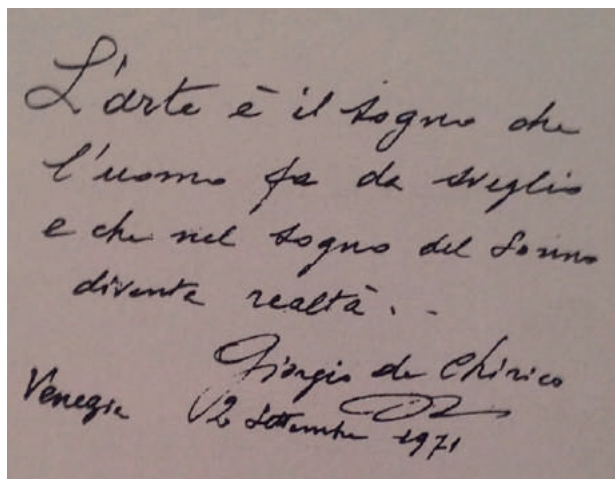 L'arte è il sogno che
l'uomo fa da sveglio
e che nel sogno del sonno
diventa realtà . . .
Giorgio de Chirico
Venezia 12 Settembre 1971